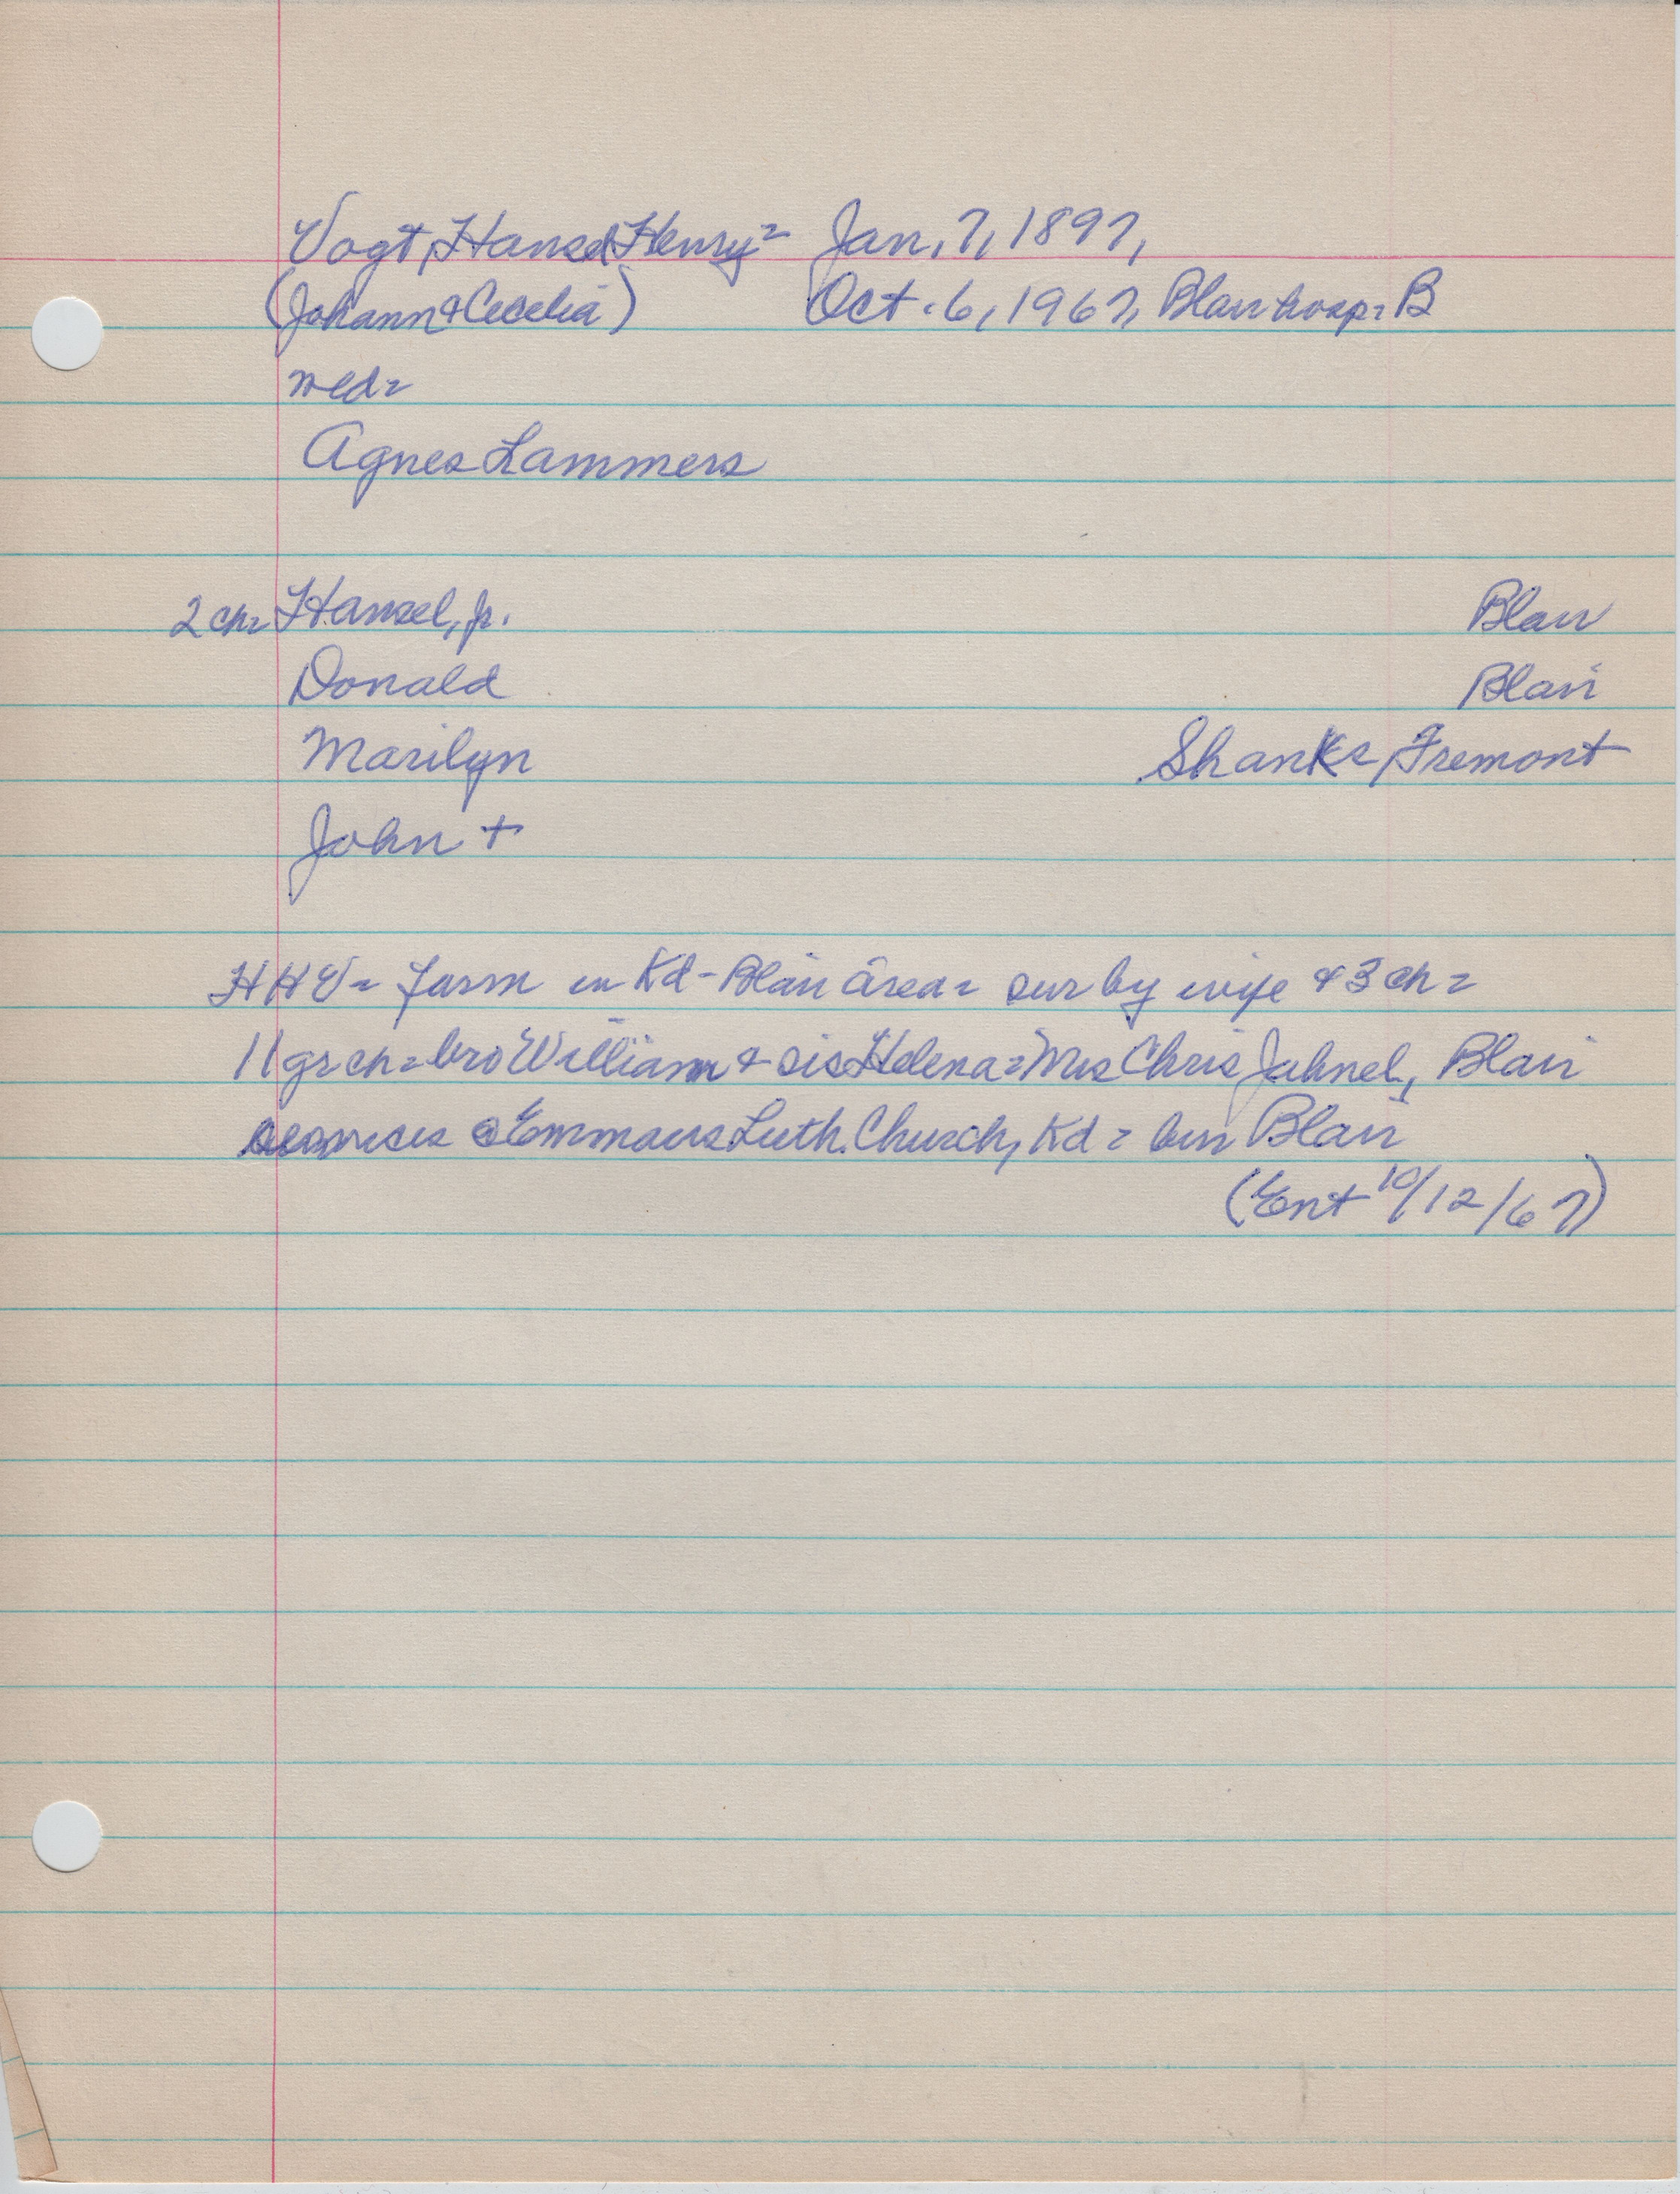 Vogt, Hansel Henry= Jan. 7, 1897,
(Johann & Cecelia) Oct. 6, 1967, Blair hosp= B
wed=
Agnes Lammers
2 ch= Hansel, Jr. Blair
Donald Blair
Marilyn Shanks, Fremont
John +
HHV= farm in Kd-Blair area= sur by wife & 3 ch=
11 gr ch= bro William & sis Helena= Mrs Chris Jahnel, Blair
services @ Emmaus Luth. Church, Kd= bur Blair
(Ent 10/12/67)